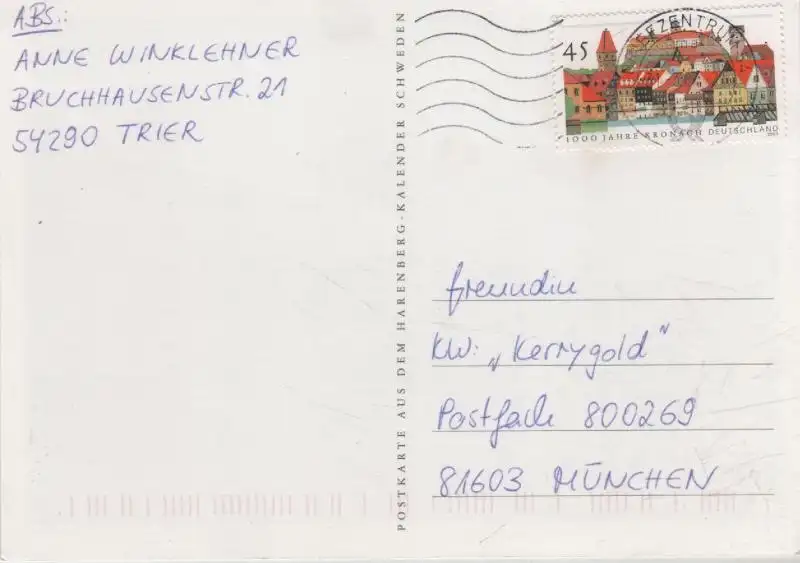 ABS.:
ANNE WINKLEHNER
BRUCHHAUSENSTR. 21
54290 TRIER
POSTKARTE AUS DEM HARENBERG-KALENDER SCHWEDEN
45
1000 JAHRE KRONACH DEUTSCHLAND
freundin
KW: „Kerrygold"
Postfach 800269
81603 MÜNCHEN